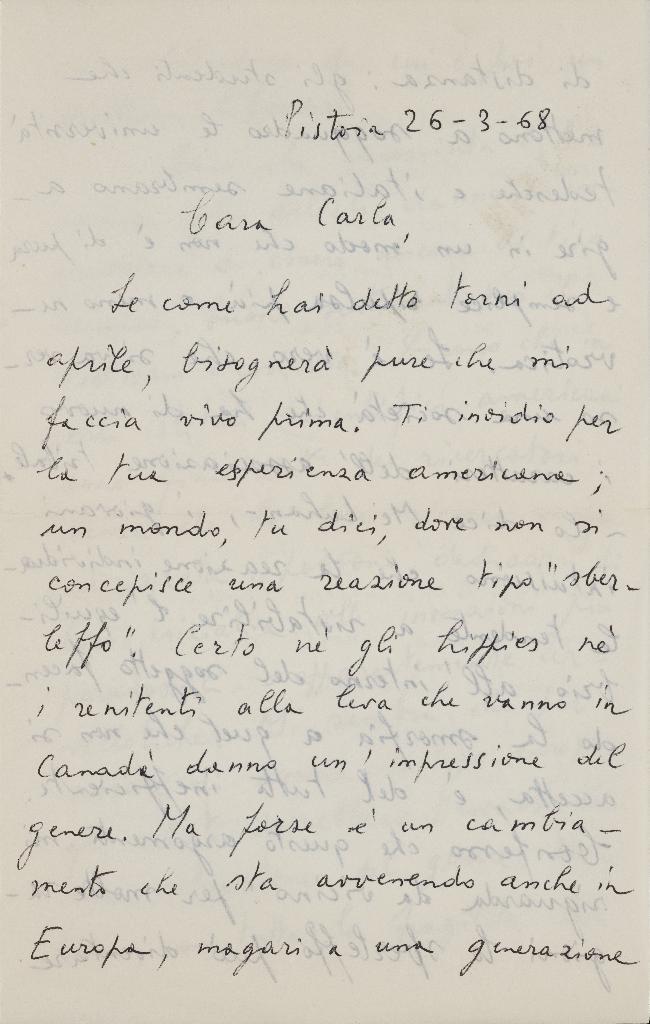 Pistoia 26-3-68
Cara Carla,
Se come hai detto torni ad
aprile, bisognerà pure che mi
faccia vivo prima. Ti invidio per
la tua esperienza americana;
un mondo, tu dici, dove non si
concepisce una reazione tipo "sber-
leffo". Certo nè gli hippies nè
i renitenti alla leva che vanno in
Canadà danno un'impressione del
genere. Ma forse è un cambia-
mento che sta avvenendo anche in
Europa, magari a una generazione